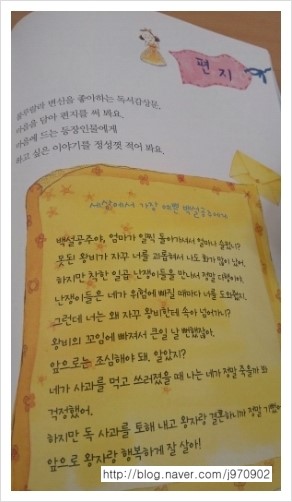 편지
변신을 좋아하는 독서감상문.
마음을 담아 편지를 써 봐요.
마음에 드는 등장인물에게
하고 싶은 이야기를 정성껏 적어 봐요.
세상에서 가장 예쁜 백설공주에게
백설공주야, 엄마가 일찍 돌아가셔서 얼마나 슬펐니?
못된 왕비가 자꾸 너를 괴롭혀서 나도 화가 많이 났어.
하지만 착한 일곱 난쟁이들을 만나서 정말 다행이야.
난쟁이들은 네가 위험에 빠질 때마다 너를 도와줬지.
그런데 너는 왜 자꾸 왕비한테 속아 넘어가니?
왕비의 꼬임에 빠져서 큰일 날 뻔했잖아.
앞으로는 조심해야 돼. 알았지?
네가 사과를 먹고 쓰러졌을 때 나는 네가 정말 죽을까 봐
걱정했어.
하지만 독 사과를 토해 내고 왕자랑 결혼하니까 정말 기뻤어
앞으로 왕자랑 행복하게 잘 살아!
http://blog.naver.com/j970902